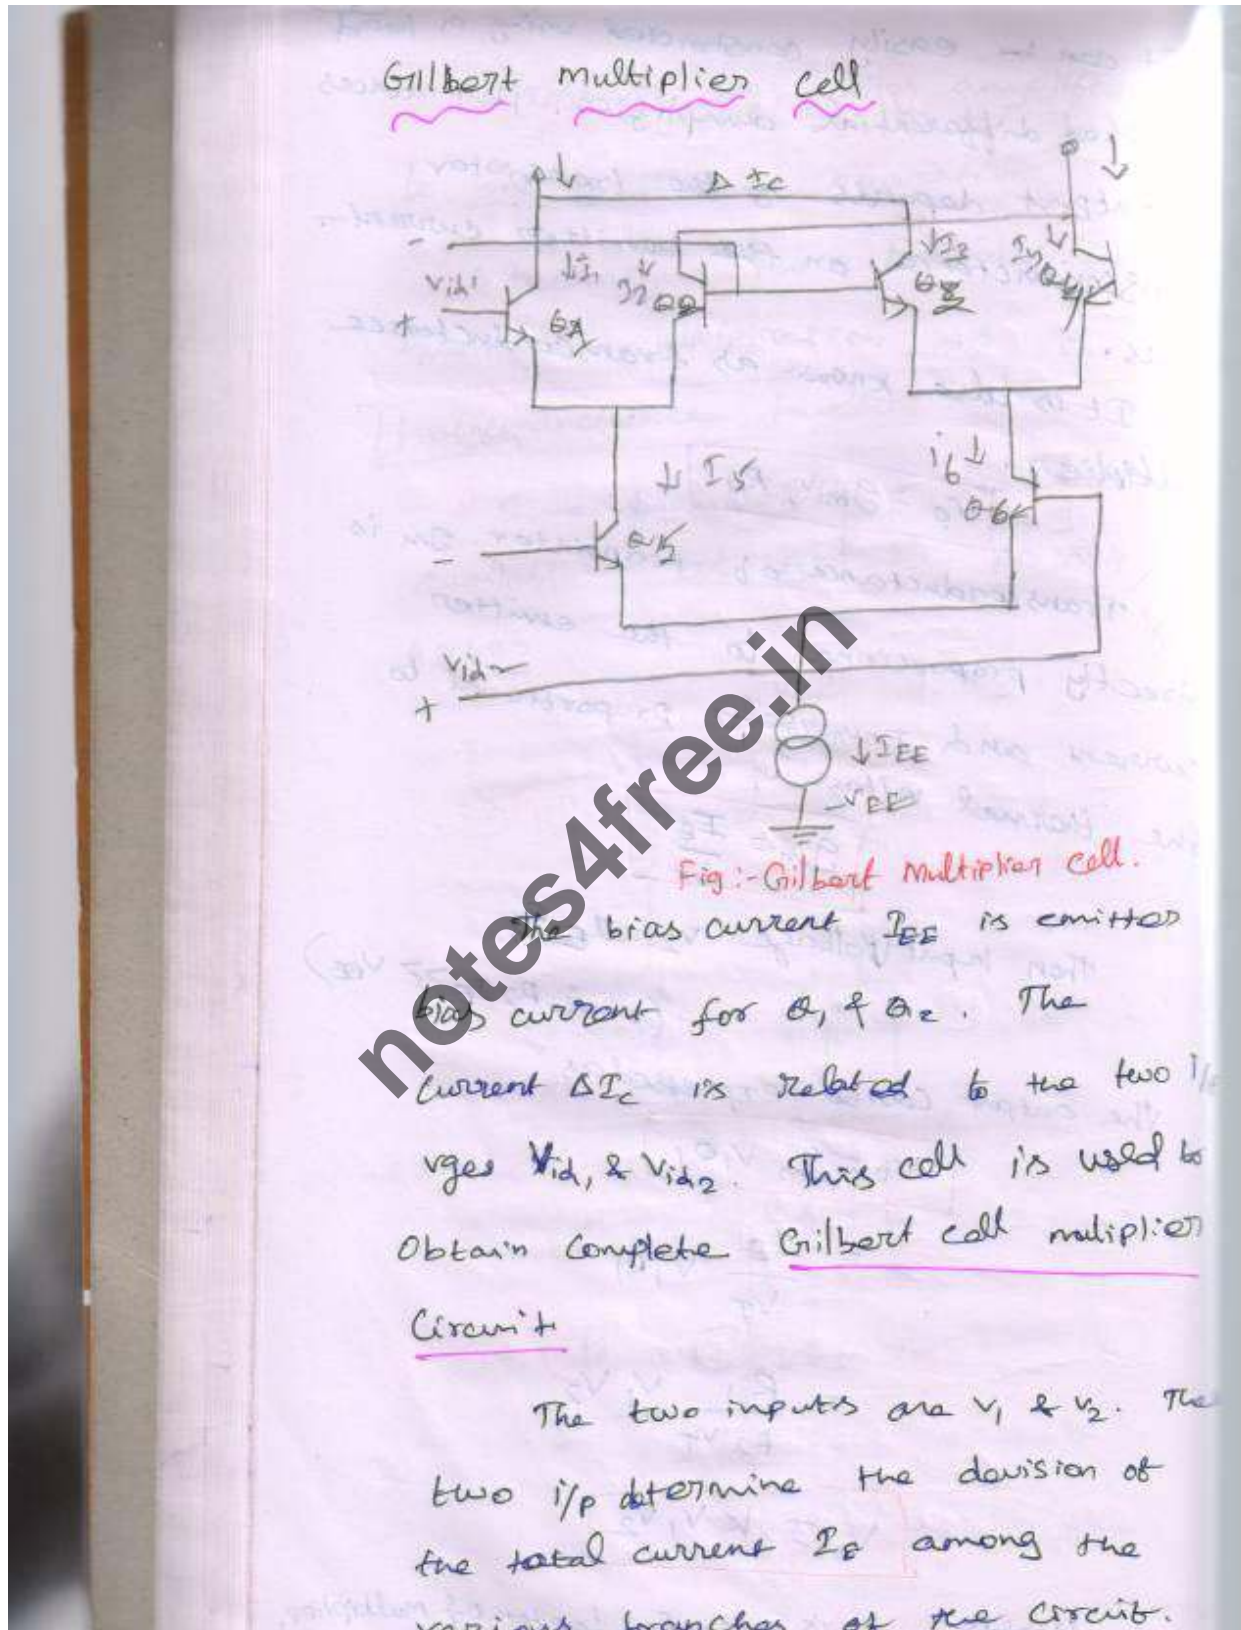 Gilbert multiplier cell
Δ IC
-
Vid1
+
↓I1
↓I3
↓ I5
i6 ↓
Q6
-
Vid2
+
↓IEE
-VEE
Fig:- Gilbert multiplier cell.
The bias current IEE is emitter
bias current for Q1 & Q2. The
current ΔIc is related to the two
vges Vid1 & Vid2. This cell is used to
Obtain Complete Gilbert cell muliplier
Circuit
The two inputs are v1 & v2. The
two i/p determine the devision of
the total current IE among the
various branches of the circuit.
notes4free.in